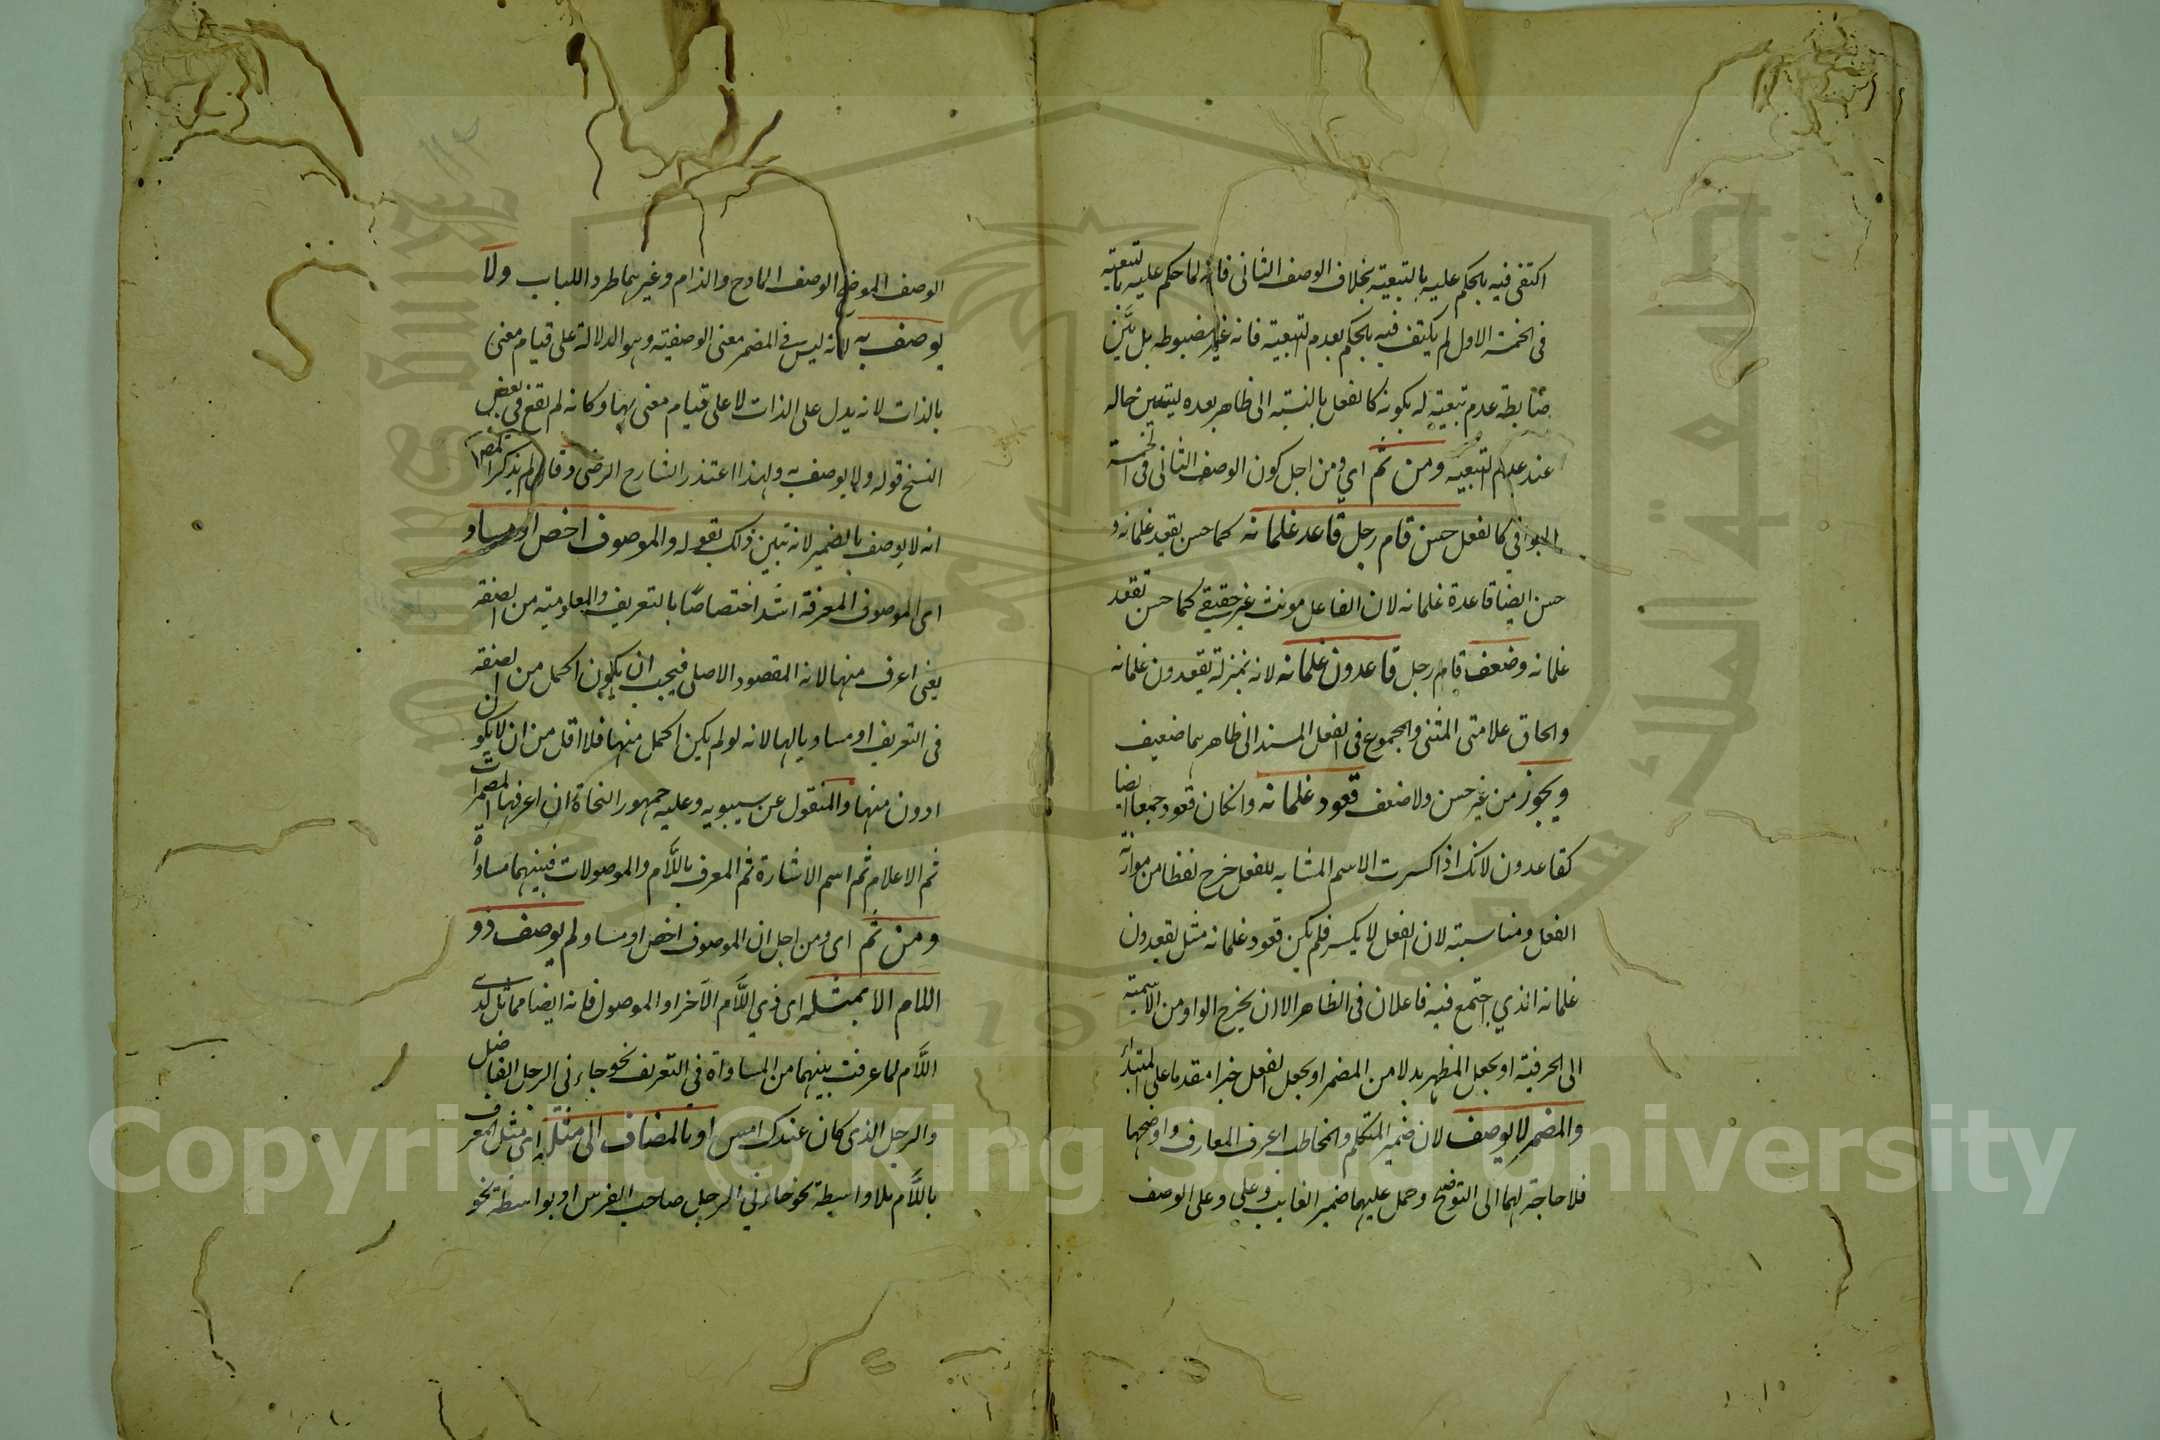 اكتفى فيه بالحكم عليه بالتبعية بخلاف الوصف الثانى فانه لما حكم عليه بالتبعية
فى الخمسة الاول لم يكتف فيه بالحكم بعدم التبعية فانه غير مضبوطه بل بيّن
ضابطة عدم تبعيته له بكونه كالفعل بالنسبة الى ظاهر بعده ليتبين حاله
عند عدم التبعية ومن ثم اي ومن اجل كون الوصف الثانى فى الخمسة
البواقي كالفعل حسن قام رجل قاعد غلمانه كما حسن يقعد غلمانه و
حسن ايضا قاعدة غلمانه لان الفاعل مونث غير حقيقي كما حسن تقعد
غلمانه وضعف قام رجل قاعدون غلمانه لانه بمنزلة يقعدون غلمانه
والحاق علامتى المثنى والمجموع فى الفعل المسند الى ظاهرهما ضعيف
ويجوز من غير حسن ولا ضعف قعود غلمانه وانكان قعود جمعا ايضا
كقاعدون لانك اذا كسرت الاسم المشابه للفعل خرج لفظا من موازنة
الفعل ومناسبته لان الفعل لا يكسر فلم يكن قعود غلمانه مثل يقعدون
غلمانه الذي اجتمع فيه فاعلان فى الظاهر الا ان يخرج الواو من الاسمية
الى الحرفية او يجعل المظهر بدلا من المضمر او يجعل الفعل خبرا مقدما على المبتداء
والمضمر لا يوصف لان ضمير المتكلم والمخاطب اعرف المعارف واوضحها
فلا حاجة لهما الى التوضيح وحمل عليهما ضمير الغايب وعلى الوصف
الوصف الموضح الوصف المادح والذام وغيرهما طردا للباب ولا
يوصف به لانه ليس فى المضمر معنى الوصفية وهو الدلالة على قيام معنى
بالذات لانه يدل على الذات لا على قيام معنى بها وكانه لم يقع فى بعض
النسخ قوله ولا يوصف به ولهذا اعتذر الشارح الرضى وقال لم يذكر المصر
انه لا يوصف بالضمير لانه تبين ذلك بقوله والموصوف اخص او مساو
اى الموصوف المعرفة اشد اختصاصًا بالتعريف والمعلومية من الصفة
يعنى اعرف منها لانه المقصود الاصلى فيجب ان يكون اكمل من الصفة
فى التعريف او مساويا لها لانه لو لم يكن اكمل منها فلا اقل من ان لا يكون
ادون منها والمنقول عن سيبويه وعليه جمهور النحاة ان اعرفها المضمرات
ثم الاعلام ثم اسم الاشارة ثم المعرف باللّام والموصولات فبينهما مساواة
ومن ثم اى ومن اجل ان الموصوف اخص او مساو لم يوصف ذو
اللام الا بمثله اى ذي اللّام الآخر او الموصول فانه ايضا مماثل لذى
اللّام لما عرفت بينهما من المساواة فى التعريف نحو جاءنى الرجل الفاضل
والرجل الذى كان عندك امس او بالمضاف الى مثله اى مثل المعرف
باللّام بلا واسطة نحو جاءني الرجل صاحب الفرس او بواسطة نحو
Copyright © King Saud University
جامعة الملك سعود